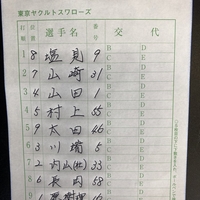 東京ヤクルトスワローズ
打順 選手名 番号 交代
1 8 塩見 9 B C D E
2 7 山崎 31 B C D E
3 4 山田 1 B C D E
4 5 村上 55 B C D E
5 9 太田 46 B C D E
6 3 川端 5 B C D E
7 2 内山(壮) 33 B C D E
8 6 長岡 58 B C D E
1 16 B D